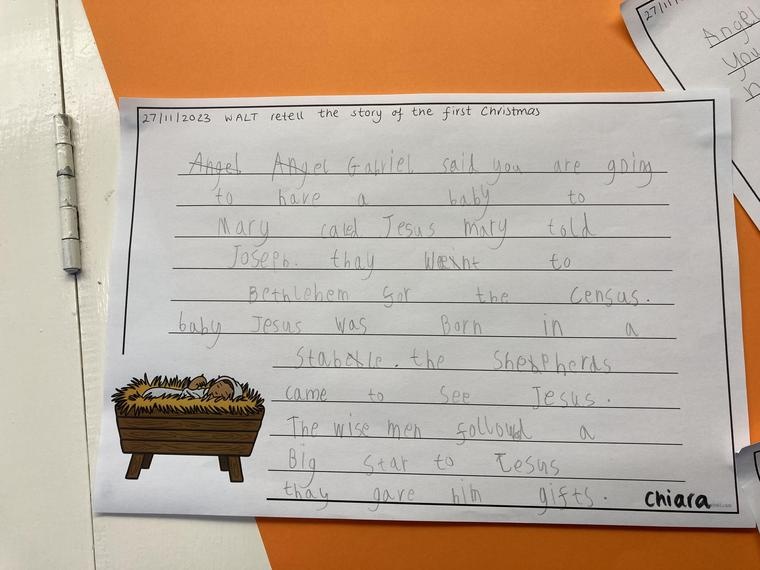 27/11/2023 WALT retell the story of the first Christmas
Angel Angel Gabriel said you are going
to have a baby to
Mary caled Jesus mary told
Joseph. thay Weint to
Bethlehem for the Census.
baby Jesus was Born in a
Stable. the Shepherds
came to See Jesus.
The wise men followd a
Big Star to Jesus
thay gave him gifts.
chiara
27/11
Angel
you